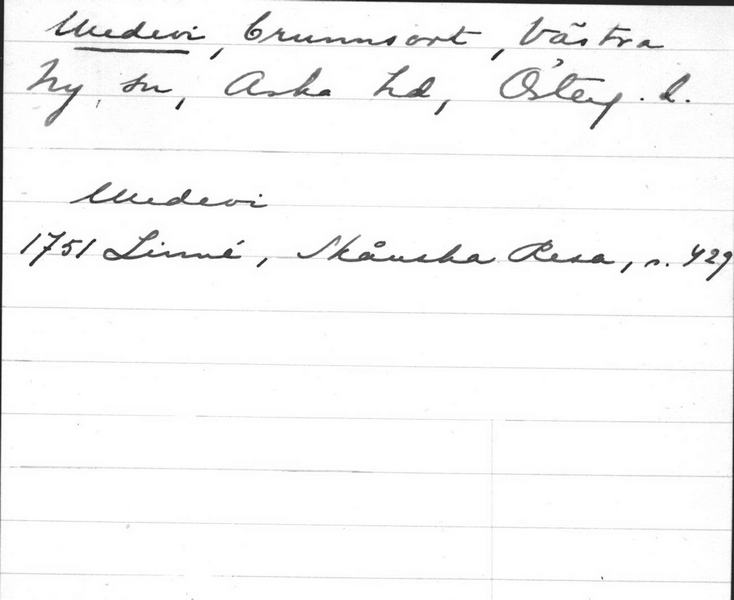 Medevi, brunnsort, Västra
Ny sn, Aska hd, Österg. l.
Medevi
1751 Linné, Skånska Resa, s. 429